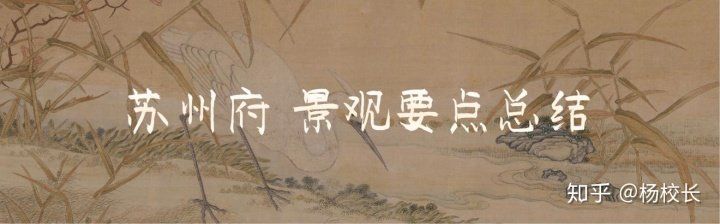 苏州府 景观要点总结
知乎 @杨校长